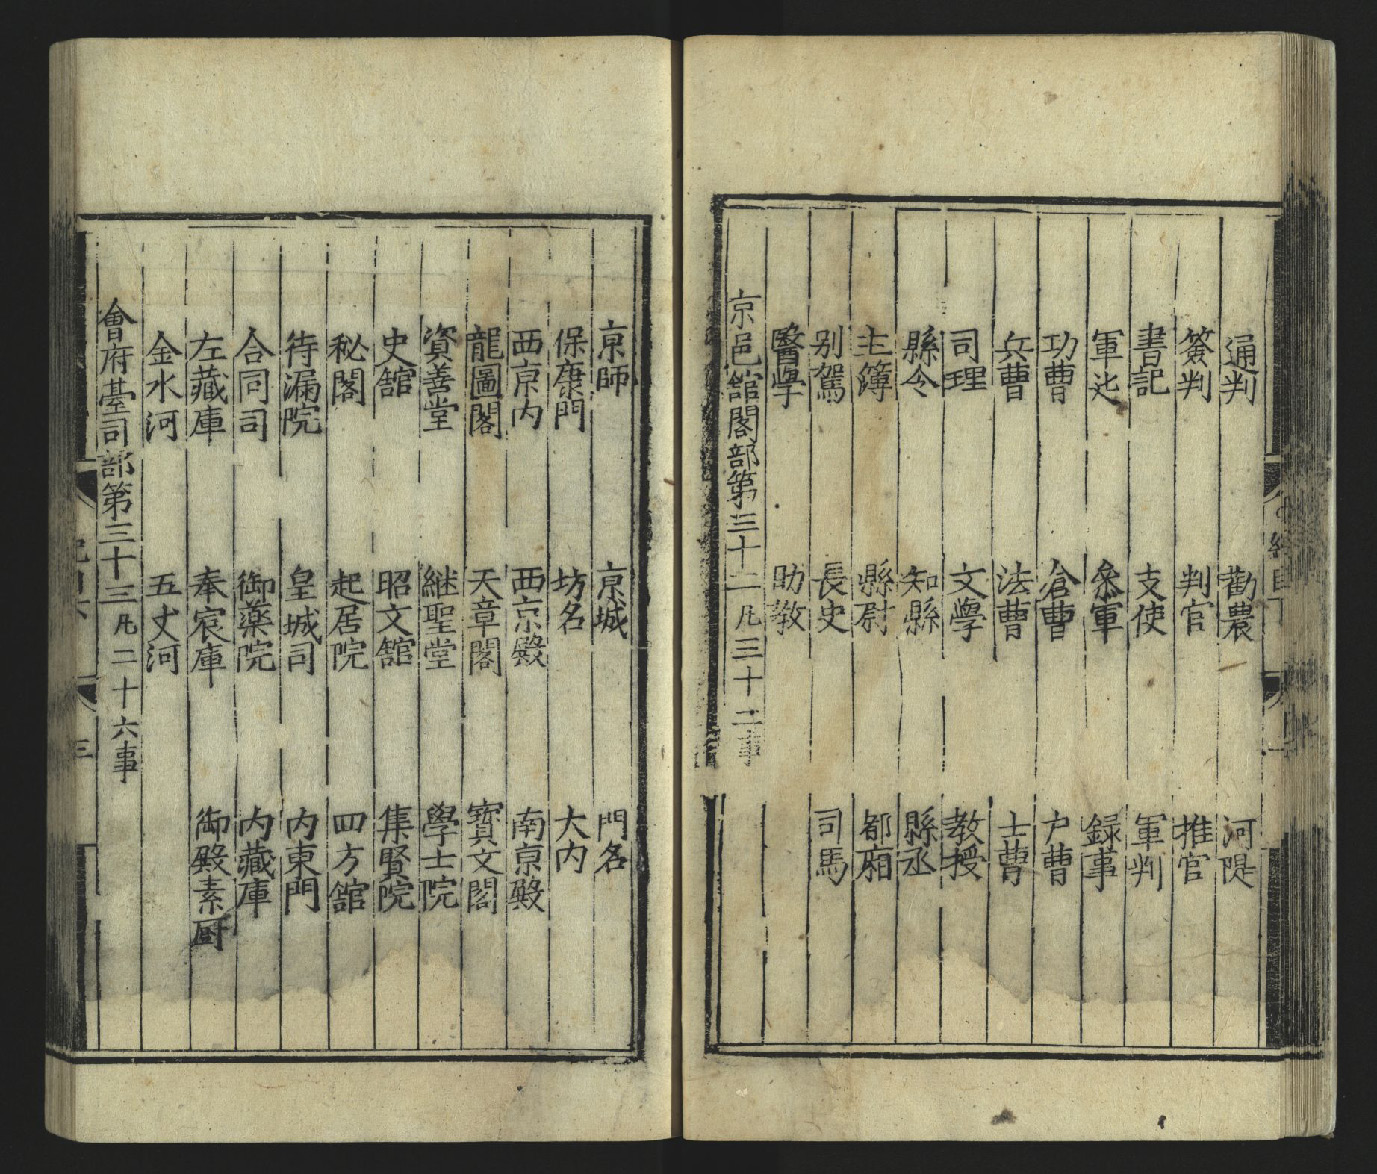 通判 勸農 河隄
簽判 判官 推官
書記 支使 軍判
軍廵 叅軍 録事
功曹 倉曹 户曹
兵曹 法曹 士曹
司理 文學 教授
縣令 知縣 縣丞
主簿 縣尉 都廂
别駕 長史 司馬
醫學 助教
京邑舘閣部第三十二凡三十二事
京師 京城 門名
保康門 坊名 大内
西京内 西京殿 南京殿
龍圖閣 天章閣 寶文閣
資善堂 継聖堂 學士院
史舘 昭文舘 集賢院
秘閣 起居院 四方舘
待漏院 皇城司 内東門
合同司 御藥院 内藏庫
左藏庫 奉宸庫 御殿素厨
金水河 五丈河
會府臺司部第三十三凡二十六事
三